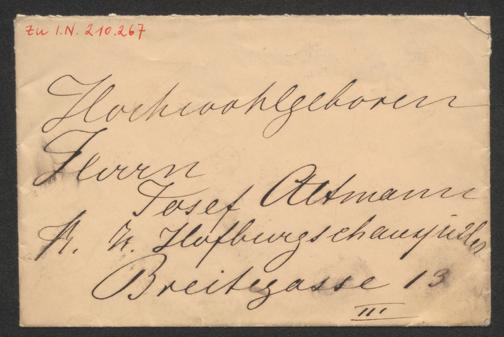 Zu I.N. 210.267
Hochwohlgeboren
Herrn
Josef Altmann
K. K. Hofburgschauspieler
Breitegasse 13
III